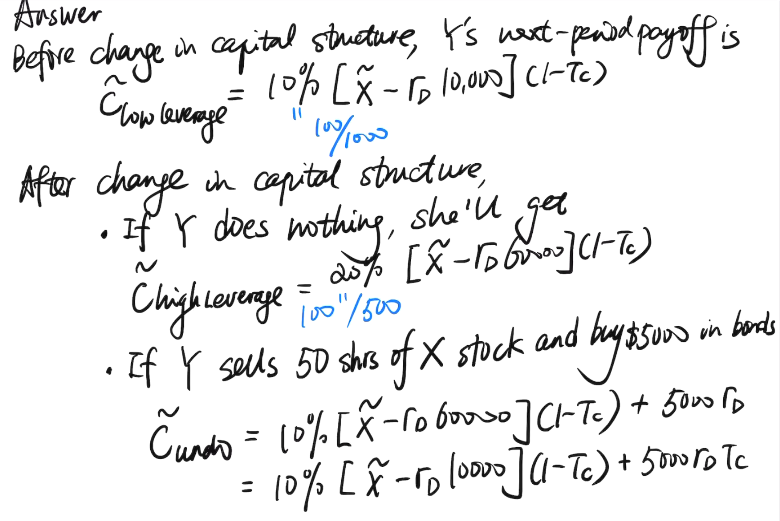 Answer
Before change in capital structure, Y's next-period payoff is
C̃low leverage = 10% [X̃ - rD 10,000] (1-Tc)
" 100/1000
After change in capital structure,
• If Y does nothing, she'll get
C̃high Leverage = 20% [X̃ - rD 60000] (1-Tc)
100"/500
• If Y sells 50 shrs of X stock and buy $5000 in bonds
C̃undo = 10% [X̃ - rD 60000] (1-Tc) + 5000 rD
= 10% [X̃ - rD 10000] (1-Tc) + 5000 rD Tc